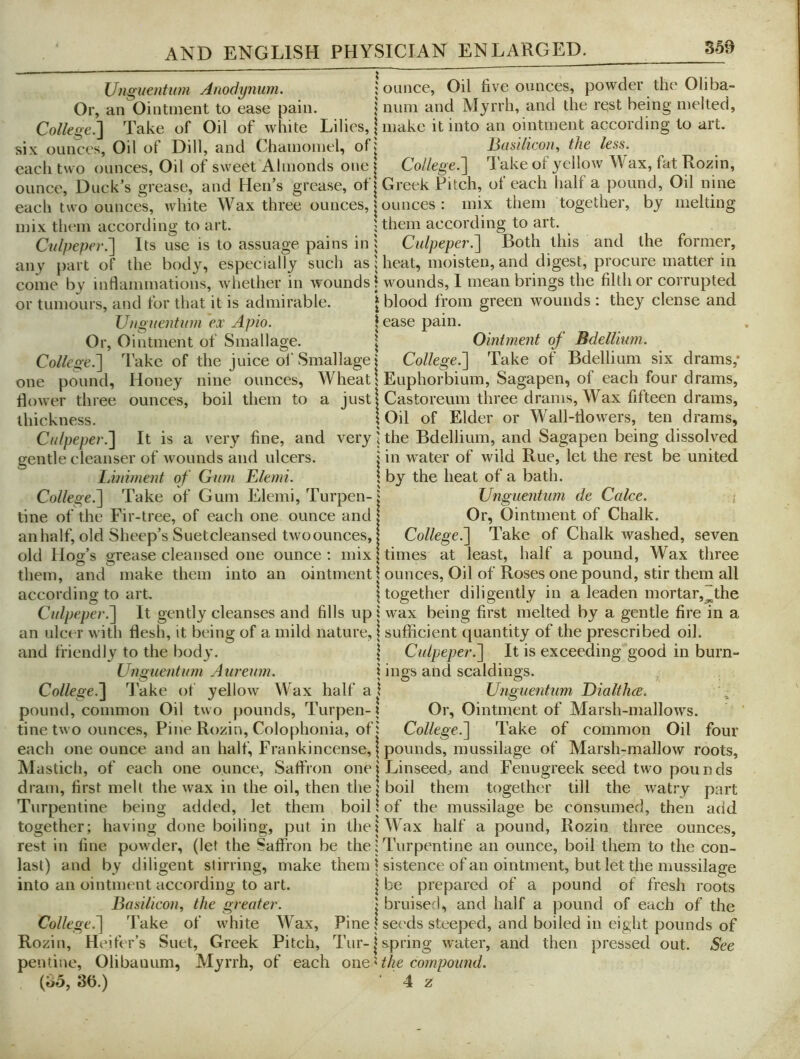 AND ENGLISH PHYSICIAN ENLARGED.
359
Unguentum Anodynum.
Or, an Ointment to ease pain.
College.] Take of Oil of white Lilies,
six ounces, Oil of Dill, and Chamomel, of
each two ounces, Oil of sweet Almonds one
ounce, Duck's grease, and Hen's grease, of
each two ounces, white Wax three ounces,
mix them according to art.
Culpeper.] Its use is to assuage pains in
any part of the body, especially such as
come by inflammations, whether in wounds
or tumours, and for that it is admirable.
Unguentum ex Apio.
Or, Ointment of Smallage.
College.] Take of the juice of Smallage
one pound, Honey nine ounces, Wheat
flower three ounces, boil them to a just
thickness.
Culpeper.] It is a very fine, and very
gentle cleanser of wounds and ulcers.
Liniment of Gum Elemi.
College.] Take of Gum Elemi, Turpen-
tine of the Fir-tree, of each one ounce and
an half, old Sheep's Suet cleansed two ounces,
old Hog's grease cleansed one ounce : mix
them, and make them into an ointment
according to art.
Culpeper.] It gently cleanses and fills up
an ulcer with flesh, it being of a mild nature,
and friendly to the body.
Unguentum Aureum.
College.] Take of yellow Wax half a
pound, common Oil two pounds, Turpen-
tine two ounces, Pine Rozin, Colophonia, of
each one ounce and an half, Frankincense,
Mastich, of each one ounce, Saffron one
dram, first melt the wax in the oil, then the
Turpentine being added, let them boil
together; having done boiling, put in the
rest in fine powder, (let the Saffron be the
last) and by diligent stirring, make them
into an ointment according to art.
Basilicon, the greater.
College.] Take of white Wax, Pine
Rozin, Heifer's Suet, Greek Pitch, Tur-
pentine, Olibanum, Myrrh, of each one
(35, 36.)
ounce, Oil five ounces, powder the Oliba-
num and Myrrh, and the rest being melted,
make it into an ointment according to art.
Basilicon, the less.
College.] Take of yellow Wax, fat Rozin,
Greek Pitch, of each half a pound, Oil nine
ounces : mix them together, by melting
them according to art.
Culpeper.] Both this and the former,
heat, moisten, and digest, procure matter in
wounds, I mean brings the filth or corrupted
blood from green wounds : they clense and
ease pain.
Ointment of Bdellium.
College.] Take of Bdellium six drams,
Euphorbium, Sagapen, of each four drams,
Castoreum three drams, Wax fifteen drams,
Oil of Elder or Wall-flowers, ten drams,
the Bdellium, and Sagapen being dissolved
in water of wild Rue, let the rest be united
by the heat of a bath.
Unguentum de Calce.
Or, Ointment of Chalk.
College.] Take of Chalk washed, seven
times at least, half a pound, Wax three
ounces, Oil of Roses one pound, stir them all
together diligently in a leaden mortar, the
wax being first melted by a gentle fire in a
sufficient quantity of the prescribed oil.
Culpeper.] It is exceeding good in burn-
ings and scaldings.
Unguentum Dialthæ.
Or, Ointment of Marsh-mallows.
College.] Take of common Oil four
pounds, mussilage of Marsh-mallow roots,
Linseed, and Fenugreek seed two pounds
boil them together till the watry part
of the mussilage be consumed, then add
Wax half a pound, Rozin three ounces,
Turpentine an ounce, boil them to the con-
sistence of an ointment, but let the mussilage
be prepared of a pound of fresh roots
bruised, and half a pound of each of the
seeds steeped, and boiled in eight pounds of
spring water, and then pressed out. See
the compound.
4 z